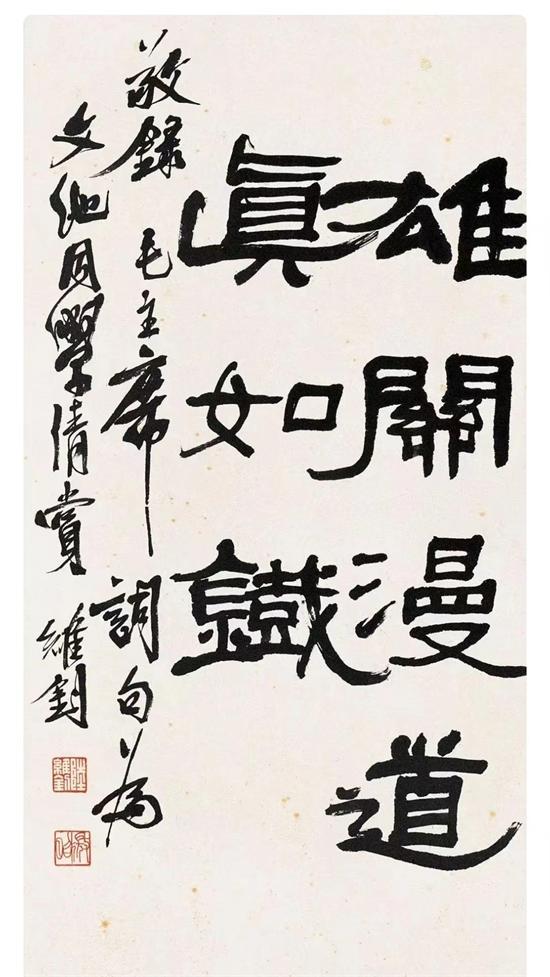 雄關漫道
眞如鐵
敬錄毛主席詞句為
文同學清賞 維釗
陸維釗